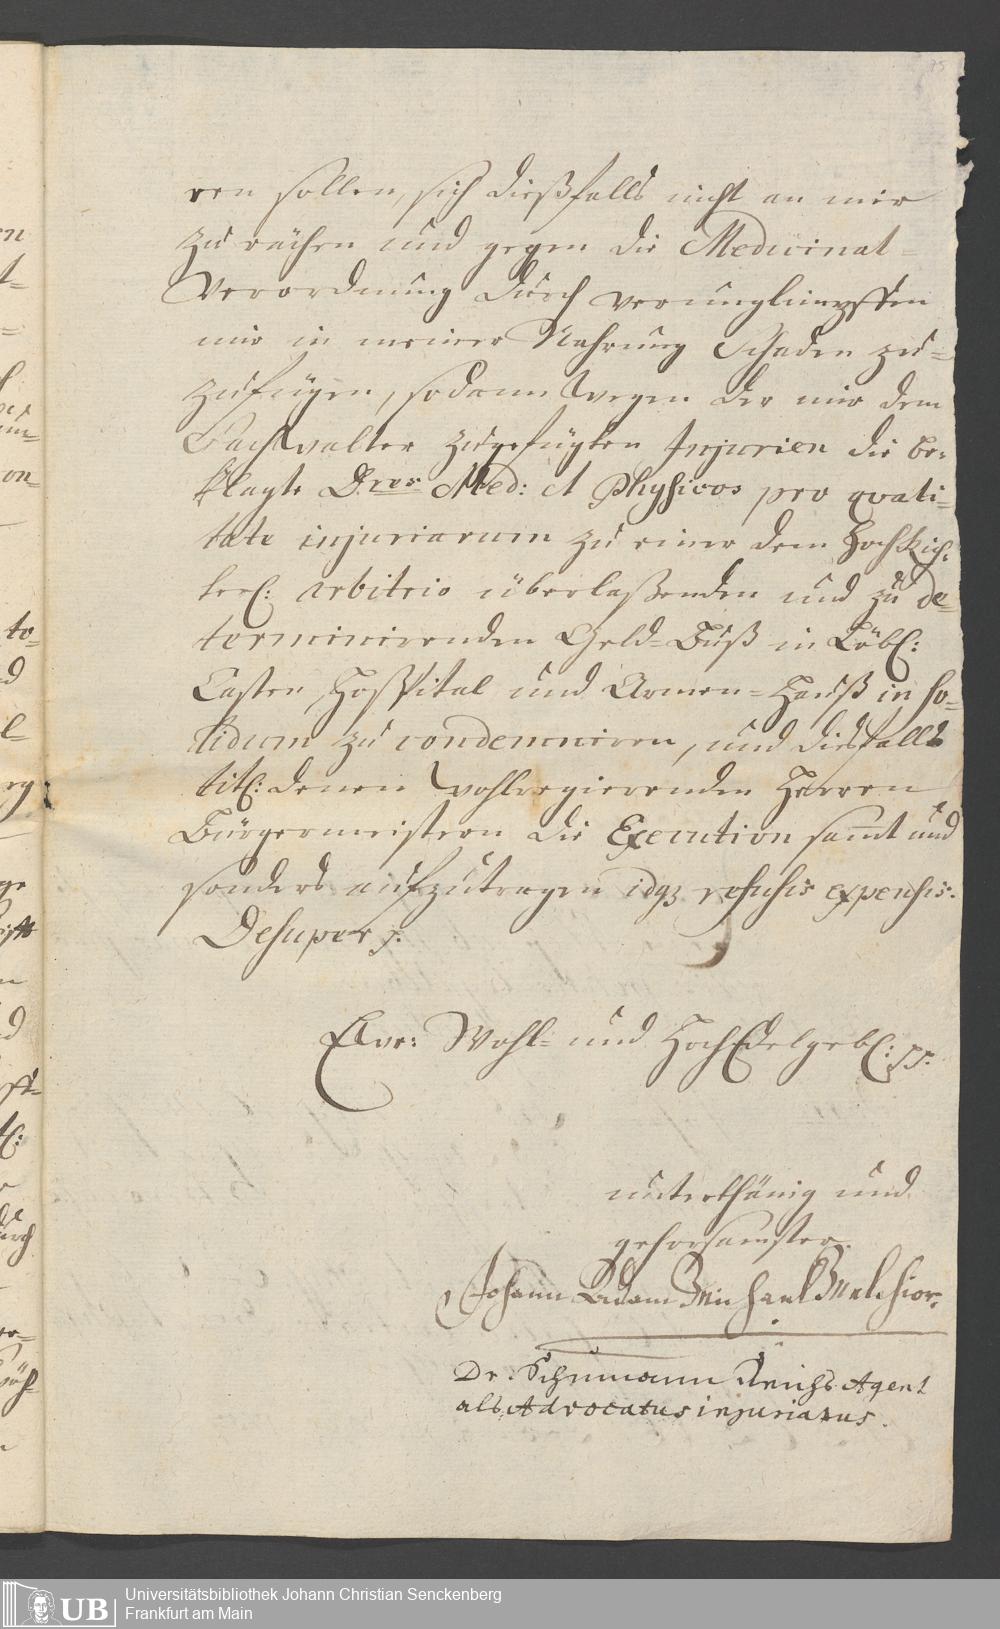 75
ren sollen, sich dießfalls nicht an mir
zu rächen und gegen die Medicinal-
Verordnung durch verunglimpffen
mir in meiner Nahrung Schaden zu-
zufügen, sodann wegen der mir dem
Sachwalter zugefügten Injurien die be-
klagte D.res Med: et Physicos pro qvali-
tate injuriarum zu einer dem HochRich-
terl: arbitrio überlaßenden und zu de-
terminirenden Geld-Buß in Löbl:
Casten, Hoßpital und Armen-Hauß in so-
lidum zu condemniren, und diesfalls
titl: denen Wohlregierenden Herren
Bürgermeistern die Execution samt und
sonders aufzutragen idq3 refusis expensis.
Desuper p.
Ewr: Wohl- und HochEdelgebl: pp.
unterthänig und
gehorsamster
Johann Adam Michael Melchior.
Dr. Schumann Reichs Agent
als Advocatus injuriatus.
UB
Universitätsbibliothek Johann Christian Senckenberg
Frankfurt am Main